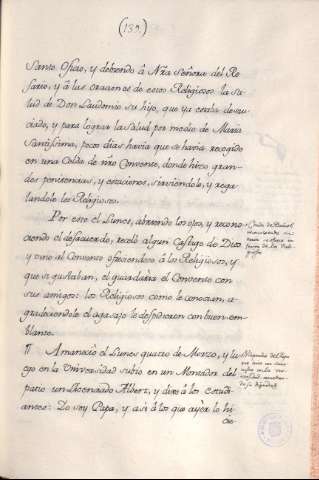 (139)
Santo Oficio, y debiendo â Nra Señora del Ro
sario, y â las oraciones de estos Religiosos la sa
lud de Don Laudomio su hijo, que ya estaba desau
ciado, y para lograr la salud por medio de Maria
Santissima, pocos dias havia que se havia recogido
en una Celda de nro Convento, donde hizo gran
des penitencias, y estaciones, sirviendole, y rega
landole los Religiosos.
Por esto el Lunes, abriendo los ojos, y recono
ciendo el desacuerdo, recelò algun Castigo de Dios
y vino al Convento ofreciendose â los Religiosos, y
que si gustaban, el guardaria el Convento con
sus amigos: los Religiosos como le conocian, a
gradeciendole el agasajo le despidieron con buen sem
blante.
¶ Amanecio el Lunes quatro de Marzo, y lu
ego en la Universidad subio en un Monador del
patio un Licenciado Aldert, y dixo â los estudi
antes: Yo soy Papa, y asi â los que ayèr lo hi
cie